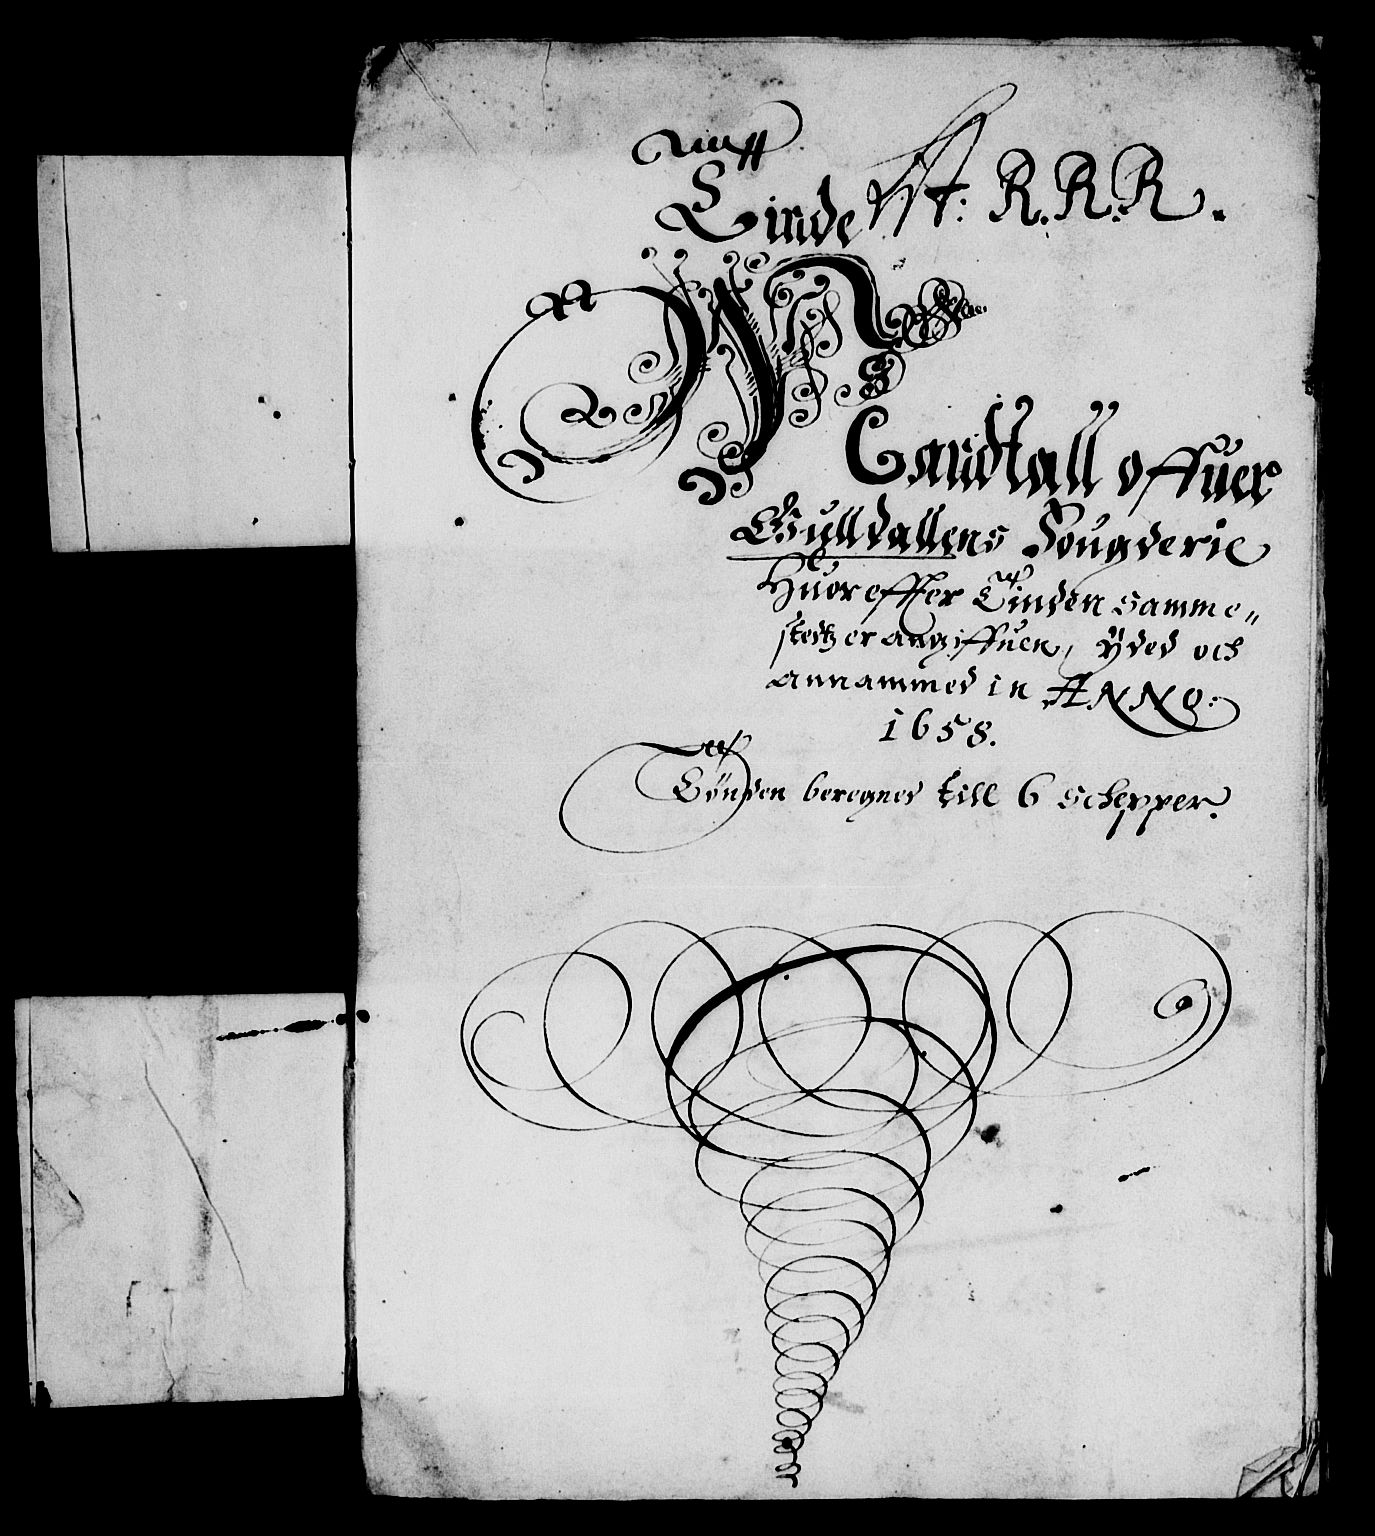 Tinde N: R. R. R.
Mandtall offuer
Gulldallens Fougderie
Huorefter Tinden samme=
stedtz er angiffuen, ÿded och
annammed in ANNO:
1658.
Tønden beregned till 6 schepper.